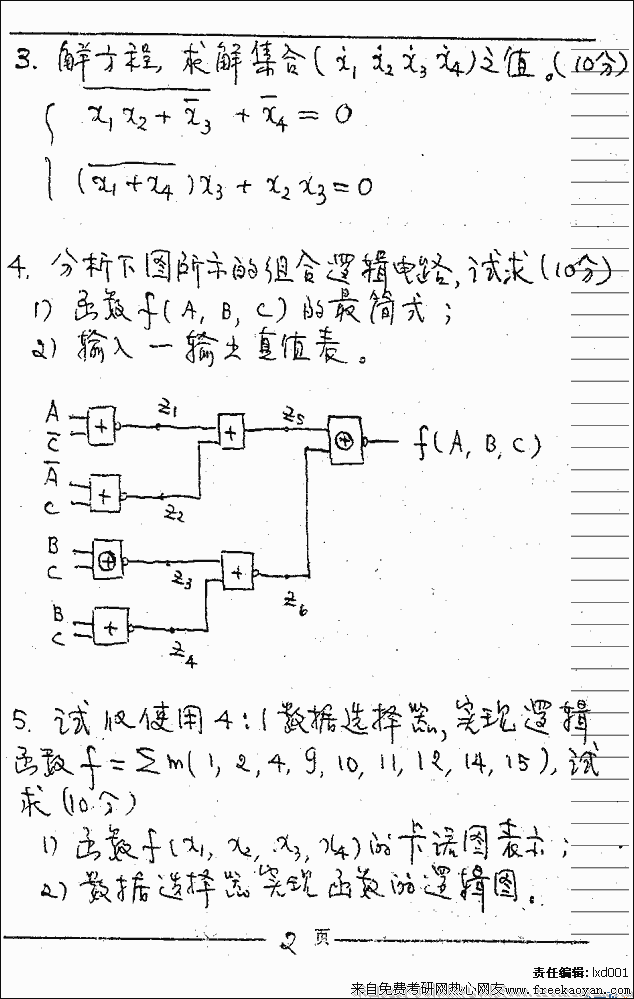 3. 解方程, 求解集合(ẋ₁ ẋ₂ ẋ₃ ẋ₄)之值。(10分)
x₁x₂ + x̄₃ + x̄₄ = 0
(x₁+x₄)x₃ + x₂x₃ = 0
4. 分析下图所示的组合逻辑电路, 试求(10分)
1) 函数f(A, B, C)的最简式;
2) 输入—输出真值表。
A
C̄
+
z₁
+
z₅
⊕
f(A, B, C)
Ā
C
+
z₂
B
C
⊕
z₃
+
z₆
B
C
+
z₄
5. 试仅使用4:1数据选择器, 实现逻辑
函数 f = Σm(1, 2, 4, 9, 10, 11, 12, 14, 15), 试
求(10分)
1) 函数f(x₁, x₂, x₃, x₄)的卡诺图表示;
2) 数据选择器实现函数的逻辑图。
2 页
责任编辑: lxd001
来自免费考研网热心网友www.freekaoyan.com